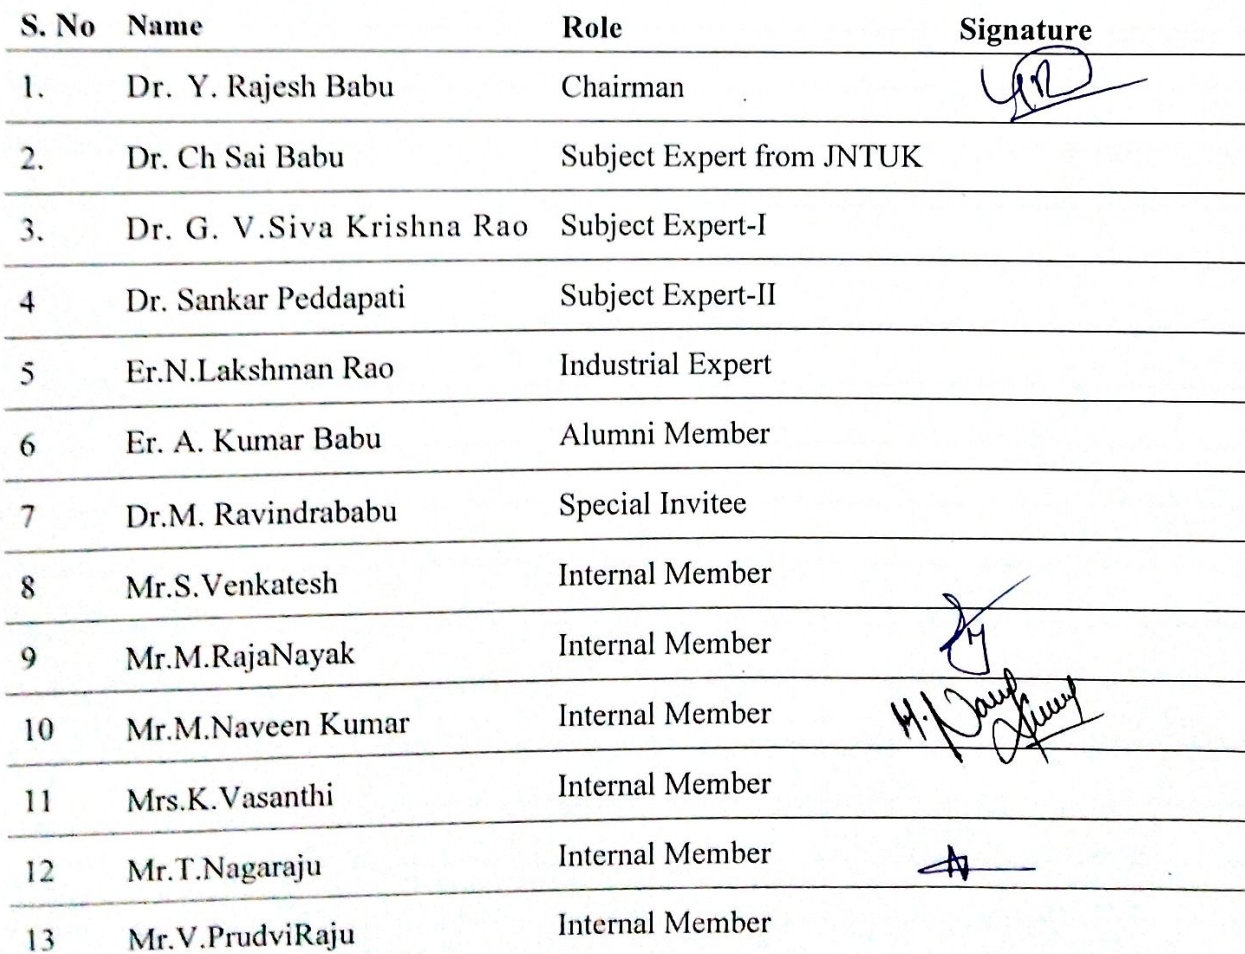 S. No Name Role Signature
1. Dr. Y. Rajesh Babu Chairman
2. Dr. Ch Sai Babu Subject Expert from JNTUK
3. Dr. G. V.Siva Krishna Rao Subject Expert-I
4 Dr. Sankar Peddapati Subject Expert-II
5 Er.N.Lakshman Rao Industrial Expert
6 Er. A. Kumar Babu Alumni Member
7 Dr.M. Ravindrababu Special Invitee
8 Mr.S.Venkatesh Internal Member
9 Mr.M.RajaNayak Internal Member
10 Mr.M.Naveen Kumar Internal Member
11 Mrs.K.Vasanthi Internal Member
12 Mr.T.Nagaraju Internal Member
13 Mr.V.PrudviRaju Internal Member